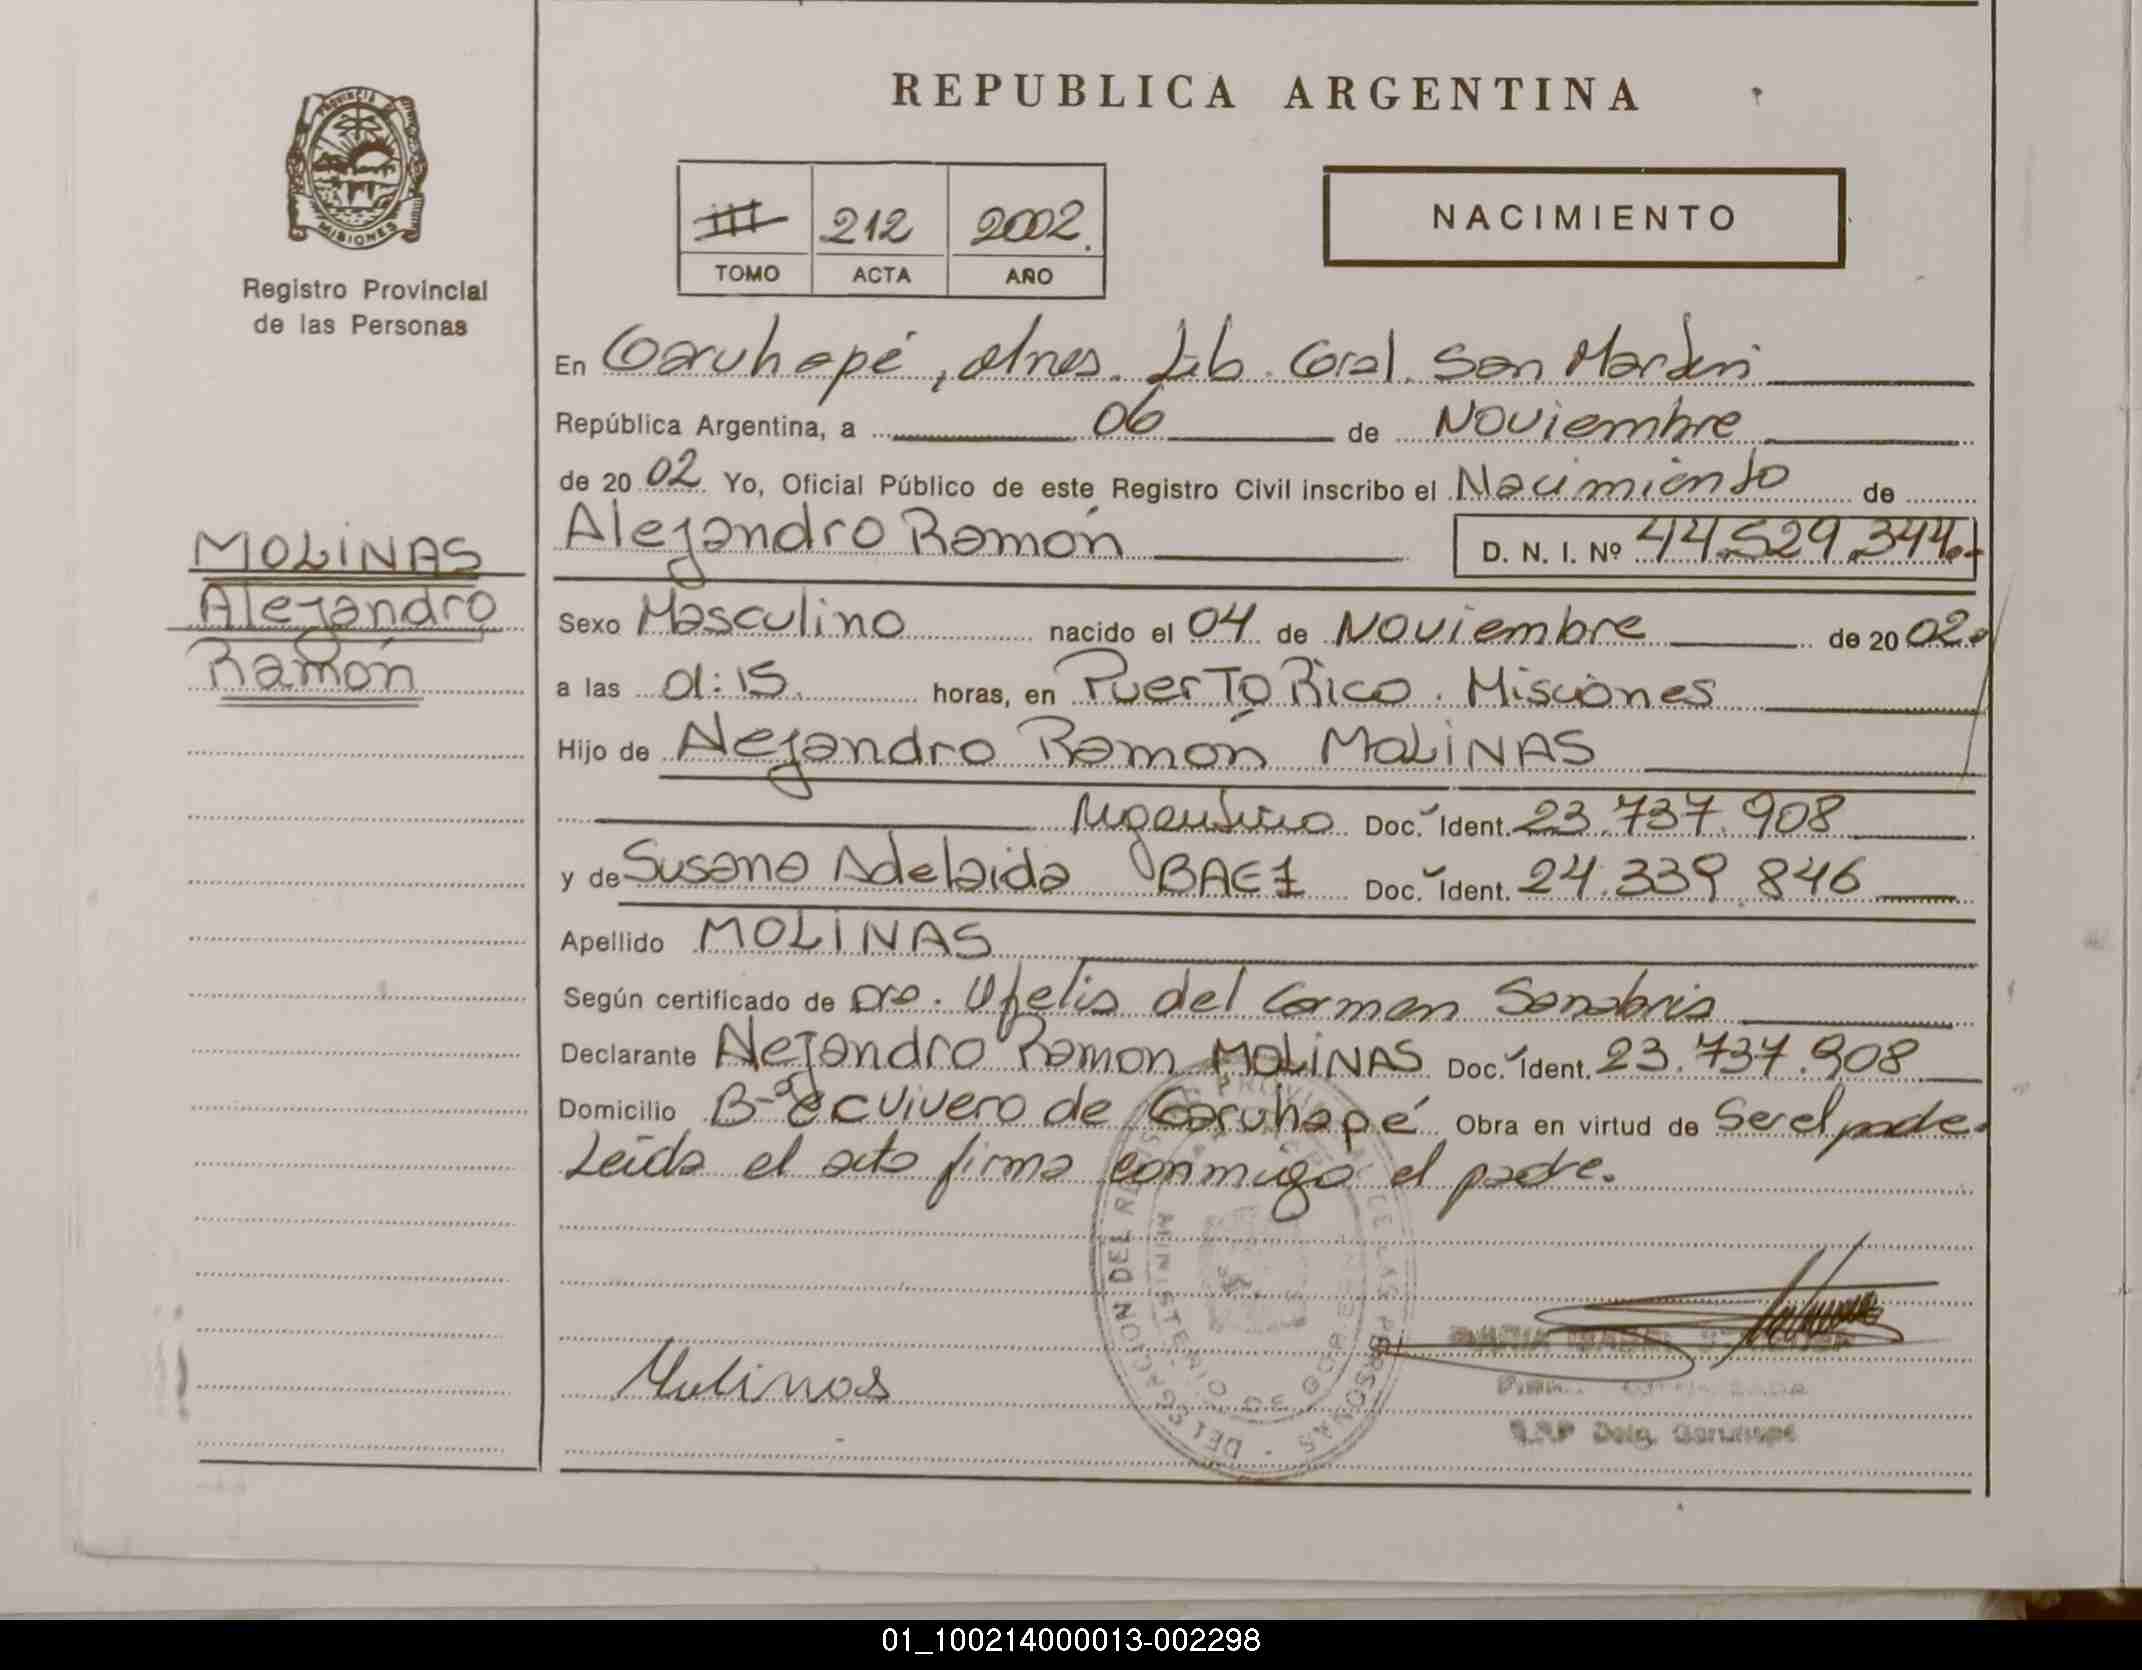 REPUBLICA ARGENTINA
PROVINCIA
MISIONES
Registro Provincial
de las Personas
III 212 2002.
TOMO ACTA AÑO
NACIMIENTO
En Garuhapé, dnes. Lib. Gral. San Martín
República Argentina, a 06 de Noviembre
de 2002 Yo, Oficial Público de este Registro Civil inscribo el Nacimiento de
Alejandro Ramón D. N. I. Nº 44.529.344.-
MOLINAS
Alejandro
Ramón
Sexo Masculino nacido el 04 de Noviembre de 2002.
a las 01:15. horas, en Puerto Rico. Misiones
Hijo de Alejandro Ramón MOLINAS
Argentino Doc. Ident. 23.737.908
y de Susana Adelaida BAEZ Doc. Ident. 24.339.846
Apellido MOLINAS
Según certificado de Dra. Ofelia del Carmen Sanabria
Declarante Alejandro Ramon MOLINAS Doc. Ident. 23.737.908
Domicilio B-º de Garuhapé Obra en virtud de Ser el padre.
Leída el acta firma conmigo el padre.
DELEGACION DEL REGISTRO PROVINCIAL DE LAS PERSONAS
MINISTERIO DE GOBIERNO
Molinas
R.P.P Deleg. Garuhapé
01_100214000013-002298